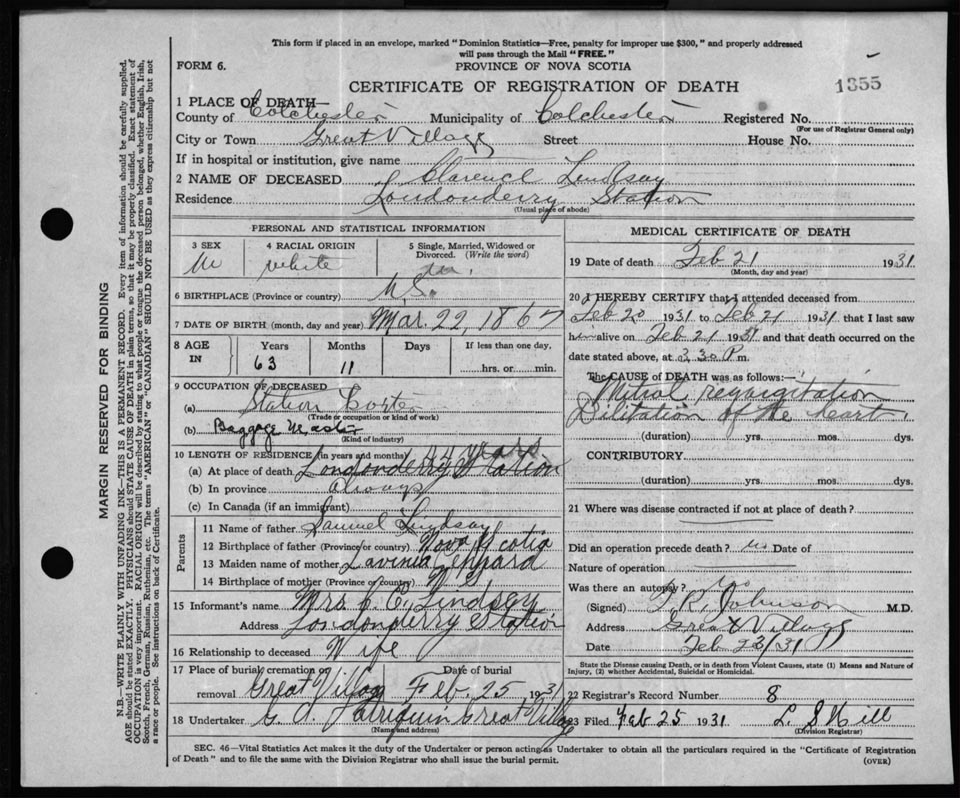 This form if placed in an envelope, marked "Dominion Statistics—Free, penalty for improper use $300," and properly addressed
will pass through the Mail "FREE."
FORM 6.
PROVINCE OF NOVA SCOTIA
CERTIFICATE OF REGISTRATION OF DEATH
1355
1 PLACE OF DEATH—
County of Colchester Municipality of Colchester Registered No.
(For use of Registrar General only)
City or Town Great Village Street House No.
If in hospital or institution, give name
2 NAME OF DECEASED Clarence Lindsay
Residence Londonderry Station
(Usual place of abode)
PERSONAL AND STATISTICAL INFORMATION
3 SEX 4 RACIAL ORIGIN 5 Single, Married, Widowed or Divorced. (Write the word)
M white m.
6 BIRTHPLACE (Province or country) N.S.
7 DATE OF BIRTH (month, day and year) Mar. 22, 1867
8 AGE IN Years Months Days If less than one day,
63 11 hrs. or min.
9 OCCUPATION OF DECEASED
(a) Station
(Trade or occupation or kind of work)
(b) Baggage Master
(Kind of industry)
10 LENGTH OF RESIDENCE (in years and months) 44 years
(a) At place of death Londonderry Station
(b) In province always
(c) In Canada (if an immigrant)
Parents
11 Name of father Samuel Lindsay
12 Birthplace of father (Province or country) Nova Scotia
13 Maiden name of mother Lavinia
14 Birthplace of mother (Province or country) N S
15 Informant's name Mrs. C. Lindsay
Address Londonderry Station
16 Relationship to deceased Wife
17 Place of burial, cremation or removal Date of burial
Great Village Feb. 25 1931
18 Undertaker G. A. Patriquin Great Village
(Name and address)
MEDICAL CERTIFICATE OF DEATH
19 Date of death Feb 21 1931
(Month, day and year)
20 I HEREBY CERTIFY that I attended deceased from
Feb 20 1931 to Feb 21 1931 that I last saw
him alive on Feb 21 1931 and that death occurred on the
date stated above, at 3.30 P m.
The CAUSE of DEATH was as follows:—
Mitral regurgitation
Dilitation of the heart.
(duration) yrs. mos. dys.
CONTRIBUTORY
(duration) yrs. mos. dys.
21 Where was disease contracted if not at place of death?
Did an operation precede death? no Date of
Nature of operation
Was there an autopsy? no
(Signed) Johnson M.D.
Address Great Village
Date Feb 23/31
State the Disease causing Death, or in death from Violent Causes, state (1) Means and Nature of
Injury, (2) whether Accidental, Suicidal or Homicidal.
22 Registrar's Record Number 8
23 Filed Feb 25 1931 L. S Hill
(Division Registrar)
SEC. 46—Vital Statistics Act makes it the duty of the Undertaker or person acting as Undertaker to obtain all the particulars required in the "Certificate of Registration
of Death" and to file the same with the Division Registrar who shall issue the burial permit.
(OVER)
MARGIN RESERVED FOR BINDING
N.B.—WRITE PLAINLY WITH UNFADING INK—THIS IS A PERMANENT RECORD. Every item of information should be carefully supplied.
AGE should be stated EXACTLY. PHYSICIANS should STATE CAUSE OF DEATH in plain terms, so that it may be properly classified. Exact statement of
OCCUPATION is very important. RACIAL ORIGIN will be described by stating to what people or tongue the deceased person belonged, whether English, Irish,
Scotch, French, German, Russian, Ruthenian, etc. The terms "AMERICAN" or "CANADIAN" SHOULD NOT BE USED as they express citizenship but not
a race or people. See instructions on back of Certificate.